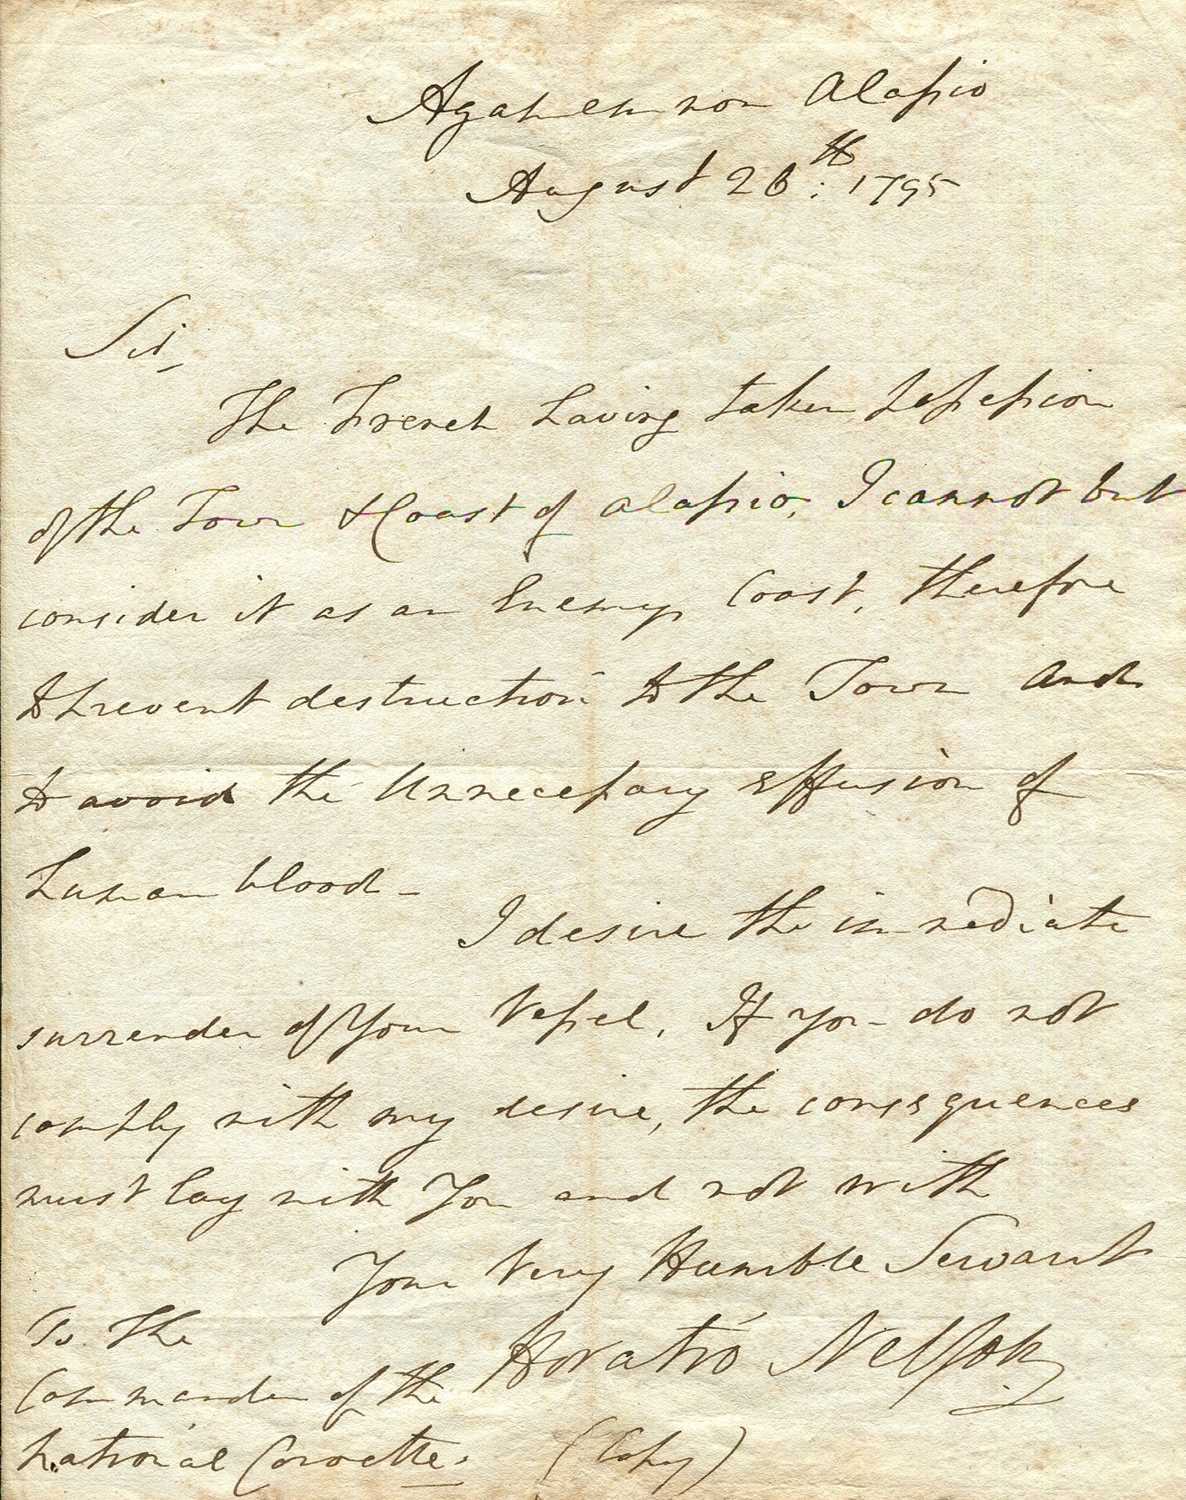 Agamemnon Alassio
August 26th: 1795
Sir,
The French having taken possession
of the Town & Coast of Alassio, I cannot but
consider it as an Enemys Coast, therefore
to prevent destruction to the Town and
to avoid the Unnecessary effusion of
human blood -
I desire the immediate
surrender of Your Vessel, If you do not
comply with my desire, the consequences
must lay with You and not with
Your Very Humble Servant
Horatio Nelson
To the
Commander of the
National Corvette.
(Copy)